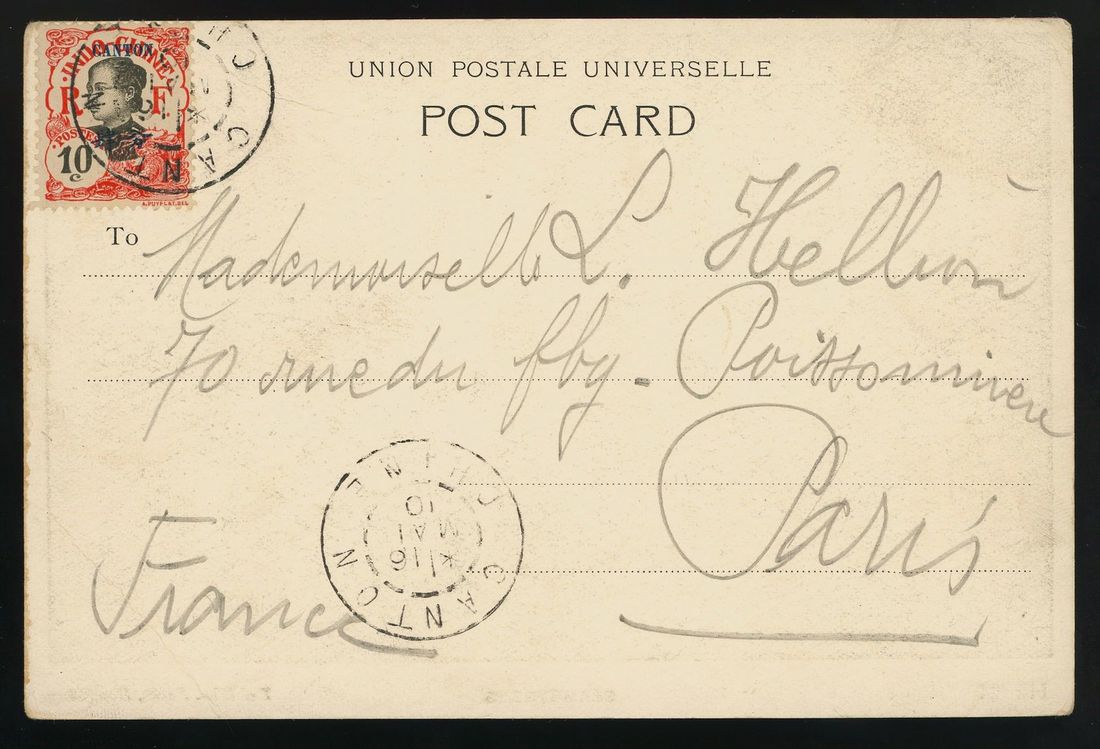 INDO-CHINE
CANTON
R F
POSTES
10 c
A. PUYPLAT. DEL
CANTON
UNION POSTALE UNIVERSELLE
POST CARD
To
Mademoiselle L. Hellion
70 rue du fbg. Poissonniere
Paris
France
CANTON
CHINE
10
MAI
16